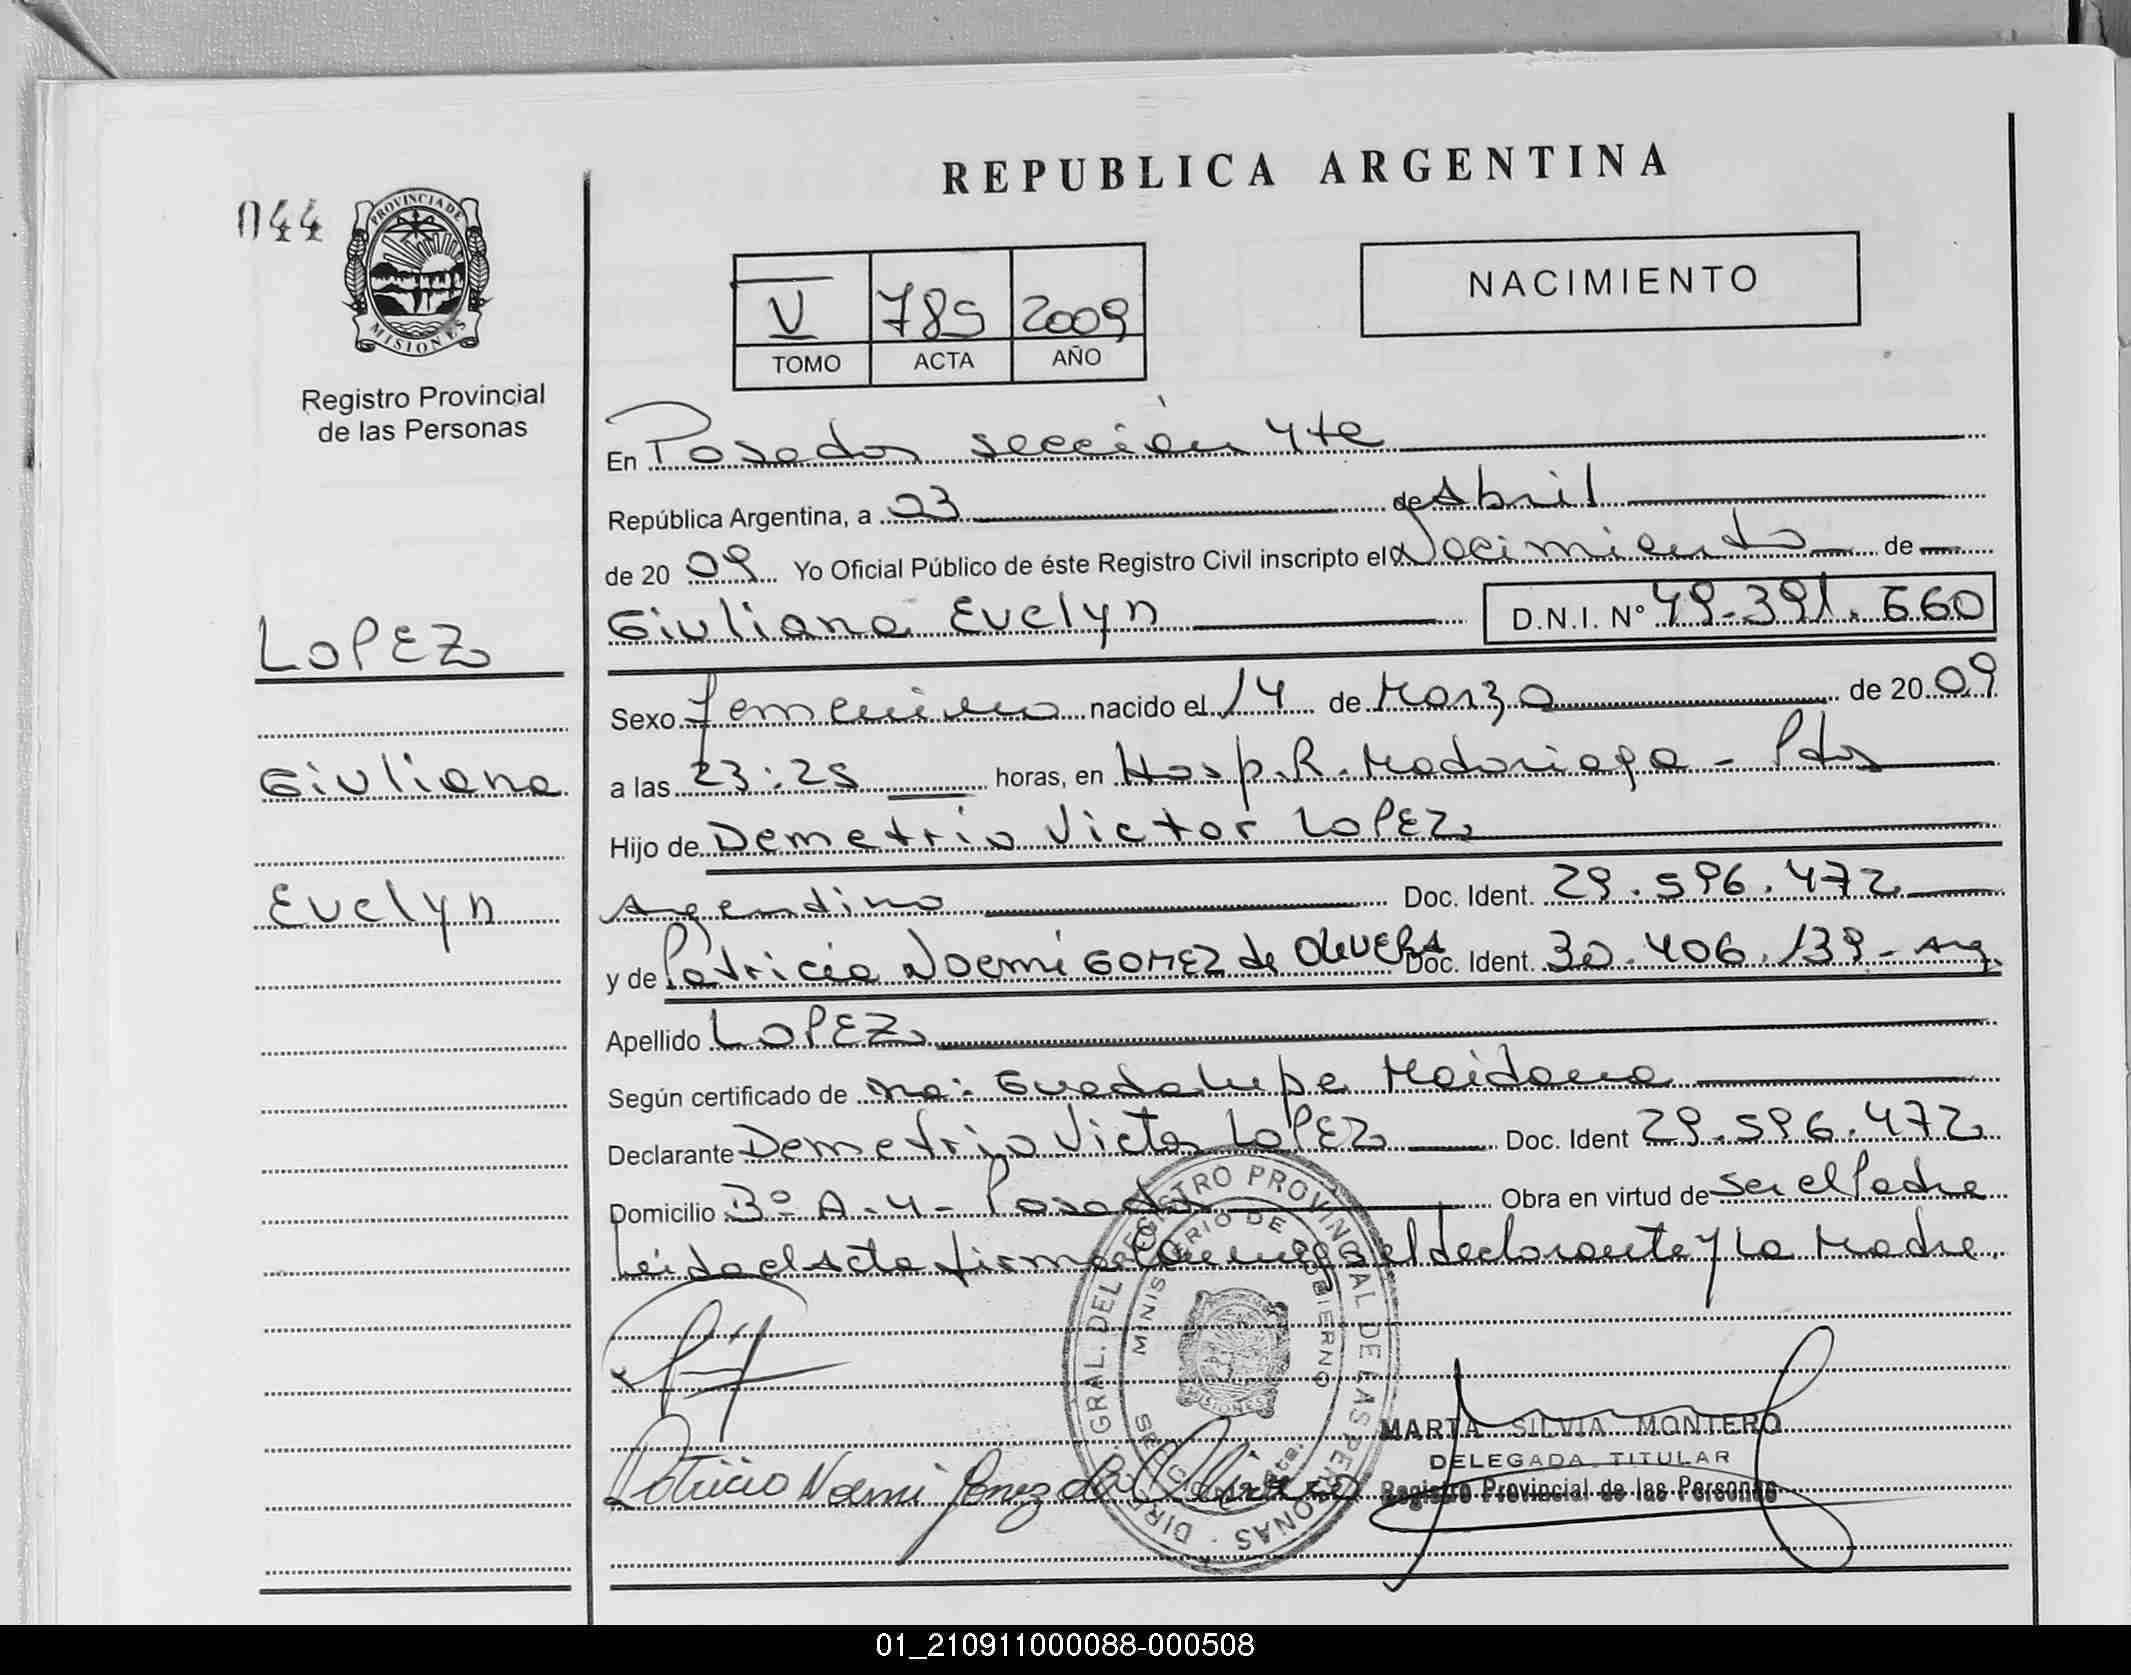 REPUBLICA ARGENTINA
044
PROVINCIA DE
MISIONES
Registro Provincial
de las Personas
V 785 2009
TOMO ACTA AÑO
NACIMIENTO
En Posadas sección 4ta
República Argentina, a 03 de Abril
de 2009 Yo Oficial Público de éste Registro Civil inscripto el Nacimiento de
Giuliana Evelyn D.N.I. Nº 49.391.660
LOPEZ
Giuliana
Evelyn
Sexo femenino nacido el 14 de Marzo de 2009
a las 23:25 horas, en Hosp. R. Madariaga - Pdas
Hijo de Demetrio Victor LOPEZ
Argentino Doc. Ident. 29.596.472
y de Patricia Noemí GOMEZ de OLIVERA Doc. Ident. 30.406.139 - Arg.
Apellido LOPEZ
Según certificado de Ma: Guadalupe Maidana
Declarante Demetrio Victor LOPEZ Doc. Ident 29.596.472
Domicilio 3º A-4- Posadas Obra en virtud de ser el Padre
Leida el Acta firma conmigo el declarante y la Madre.
DIREC. GRAL. DEL REGISTRO PROVINCIAL DE LAS PERSONAS
MINISTERIO DE GOBIERNO
MISIONES
Patricia Noemi Gomez de Olivera
MARTA SILVIA MONTERO
DELEGADA TITULAR
Registro Provincial de las Personas
01_210911000088-000508